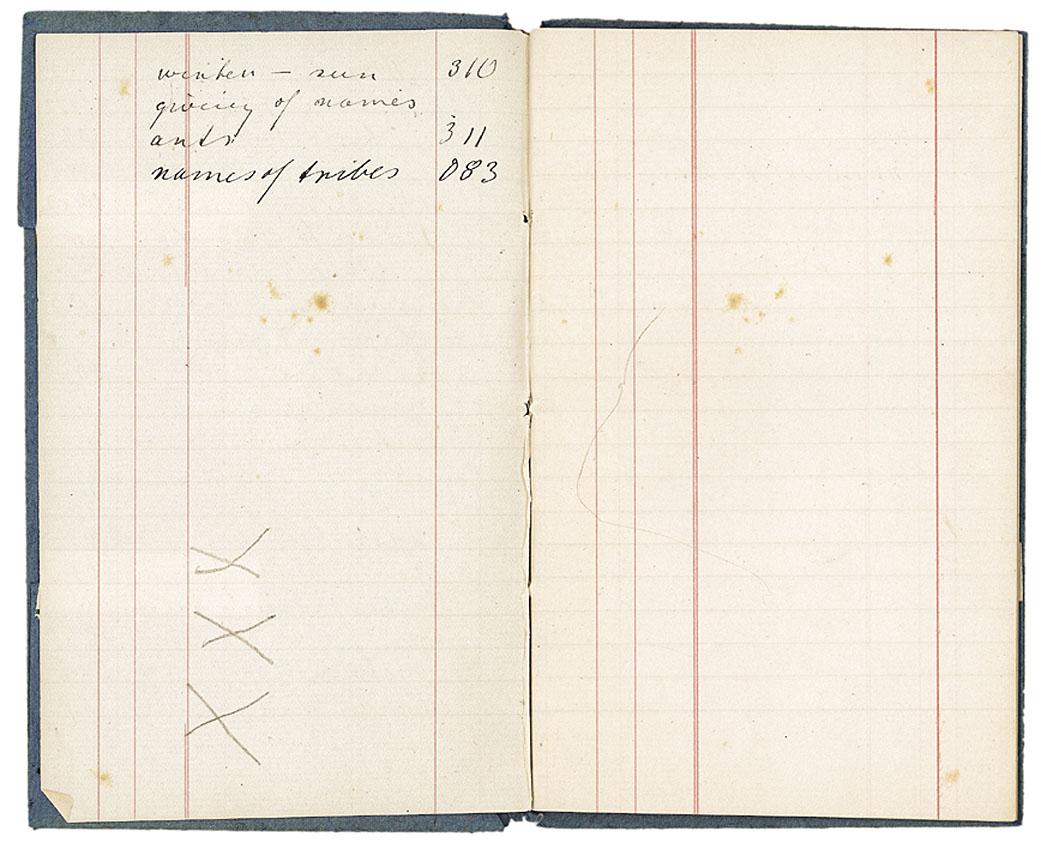 winter – sun 310
giving of names
ants 311
names of tribes 083
X
X
X